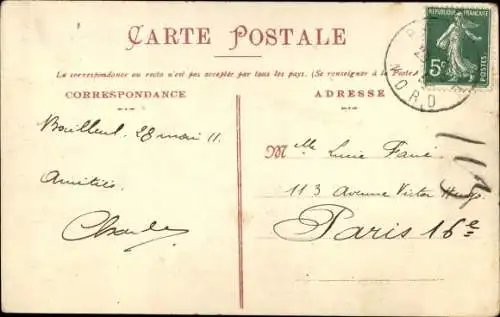 CARTE POSTALE
La correspondance au recto n'est pas acceptée par tous les pays. (Se renseigner à la Poste)
CORRESPONDANCE
ADRESSE
REPUBLIQUE FRANÇAISE
5c
POSTES
NORD
Bailleul. 28 mai 11.
Amitiés.
Charles
Melle Lucie
113 Avenue Victor Hugo
Paris 16e